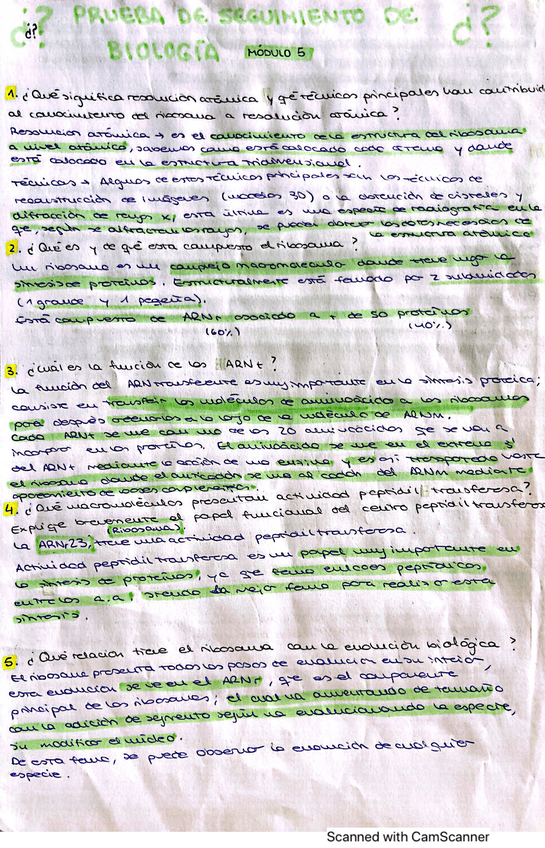 ¿? PRUEBA DE SEGUIMIENTO DE ¿?
BIOLOGÍA MÓDULO 5
1. ¿Qué significa resolución atómica y qé técnicas principales han contribuid
al conocimiento del ribosoma a resolución atómica?
Resolución atómica → es el conocimiento de la estructura del ribosoma
a nivel atómico, sabemos como está colocado cada átomo y donde
está colocado en la estructura tridimensional.
Técnicas → Algunas de estas técnicas principales son las técnicas de
reconstrucción de imágenes (modelos 3D) o la obtención de cristales y
difracción de rayos x, esta última es una especie de radiografía en la
qe, según se difractan los rayos, se pueden obtener las
la estructura atómica
2. ¿Qué es y de qé esta compuesto el ribosoma?
Un ribosoma es un complejo macromolecular donde tiene lugar la
síntesis de proteínas. Estructuralmente está formado por 2 subunidades
(1 grande y 1 peqeña).
Está compuesto de ARNr asociado a + de 50 proteínas
(60%) (40%)
3. ¿Cuál es la función de los ARNt?
La función del ARN transferente es muy importante en la síntesis proteica;
consiste en transferir las moléculas de aminoácido a los ribosomas
para después ordenarlos a lo largo de la molécula de ARNm.
Cada ARNt se une con uno de los 20 aminoácidos qe se van a
incorporar en las proteínas. El aminoácido se une en el extremo 3'
del ARNt mediante la acción de una enzima, y es así transportado hasta
el ribosoma donde el anticodón se une al codón del ARNm mediante
apareamiento de bases complementarias.
4. ¿Qué macromoléculas presentan actividad peptidil transferasa?
Expliqe brevemente el papel funcional del centro peptidil transferas
(Ribosoma)
La ARNr23, tiene una actividad peptidil transferasa.
Actividad peptidil transferasa es un papel muy importante en
la síntesis de proteínas, ya qe forma enlaces peptídicos
entre los a.a, siendo la mejor forma para realizar esta
síntesis.
5. ¿Qué relación tiene el ribosoma con la evolución biológica?
El ribosoma presenta todos los pasos de evolución en su interior,
esta evolución se ve en el ARNr, qe es el componente
principal de los ribosomas; el cual va aumentando de tamaño
con la adición de segmento según va evolucionando la especie,
sin modificar el núcleo.
De esta forma, se puede observar la evolución de cualquier
especie.
Scanned with CamScanner